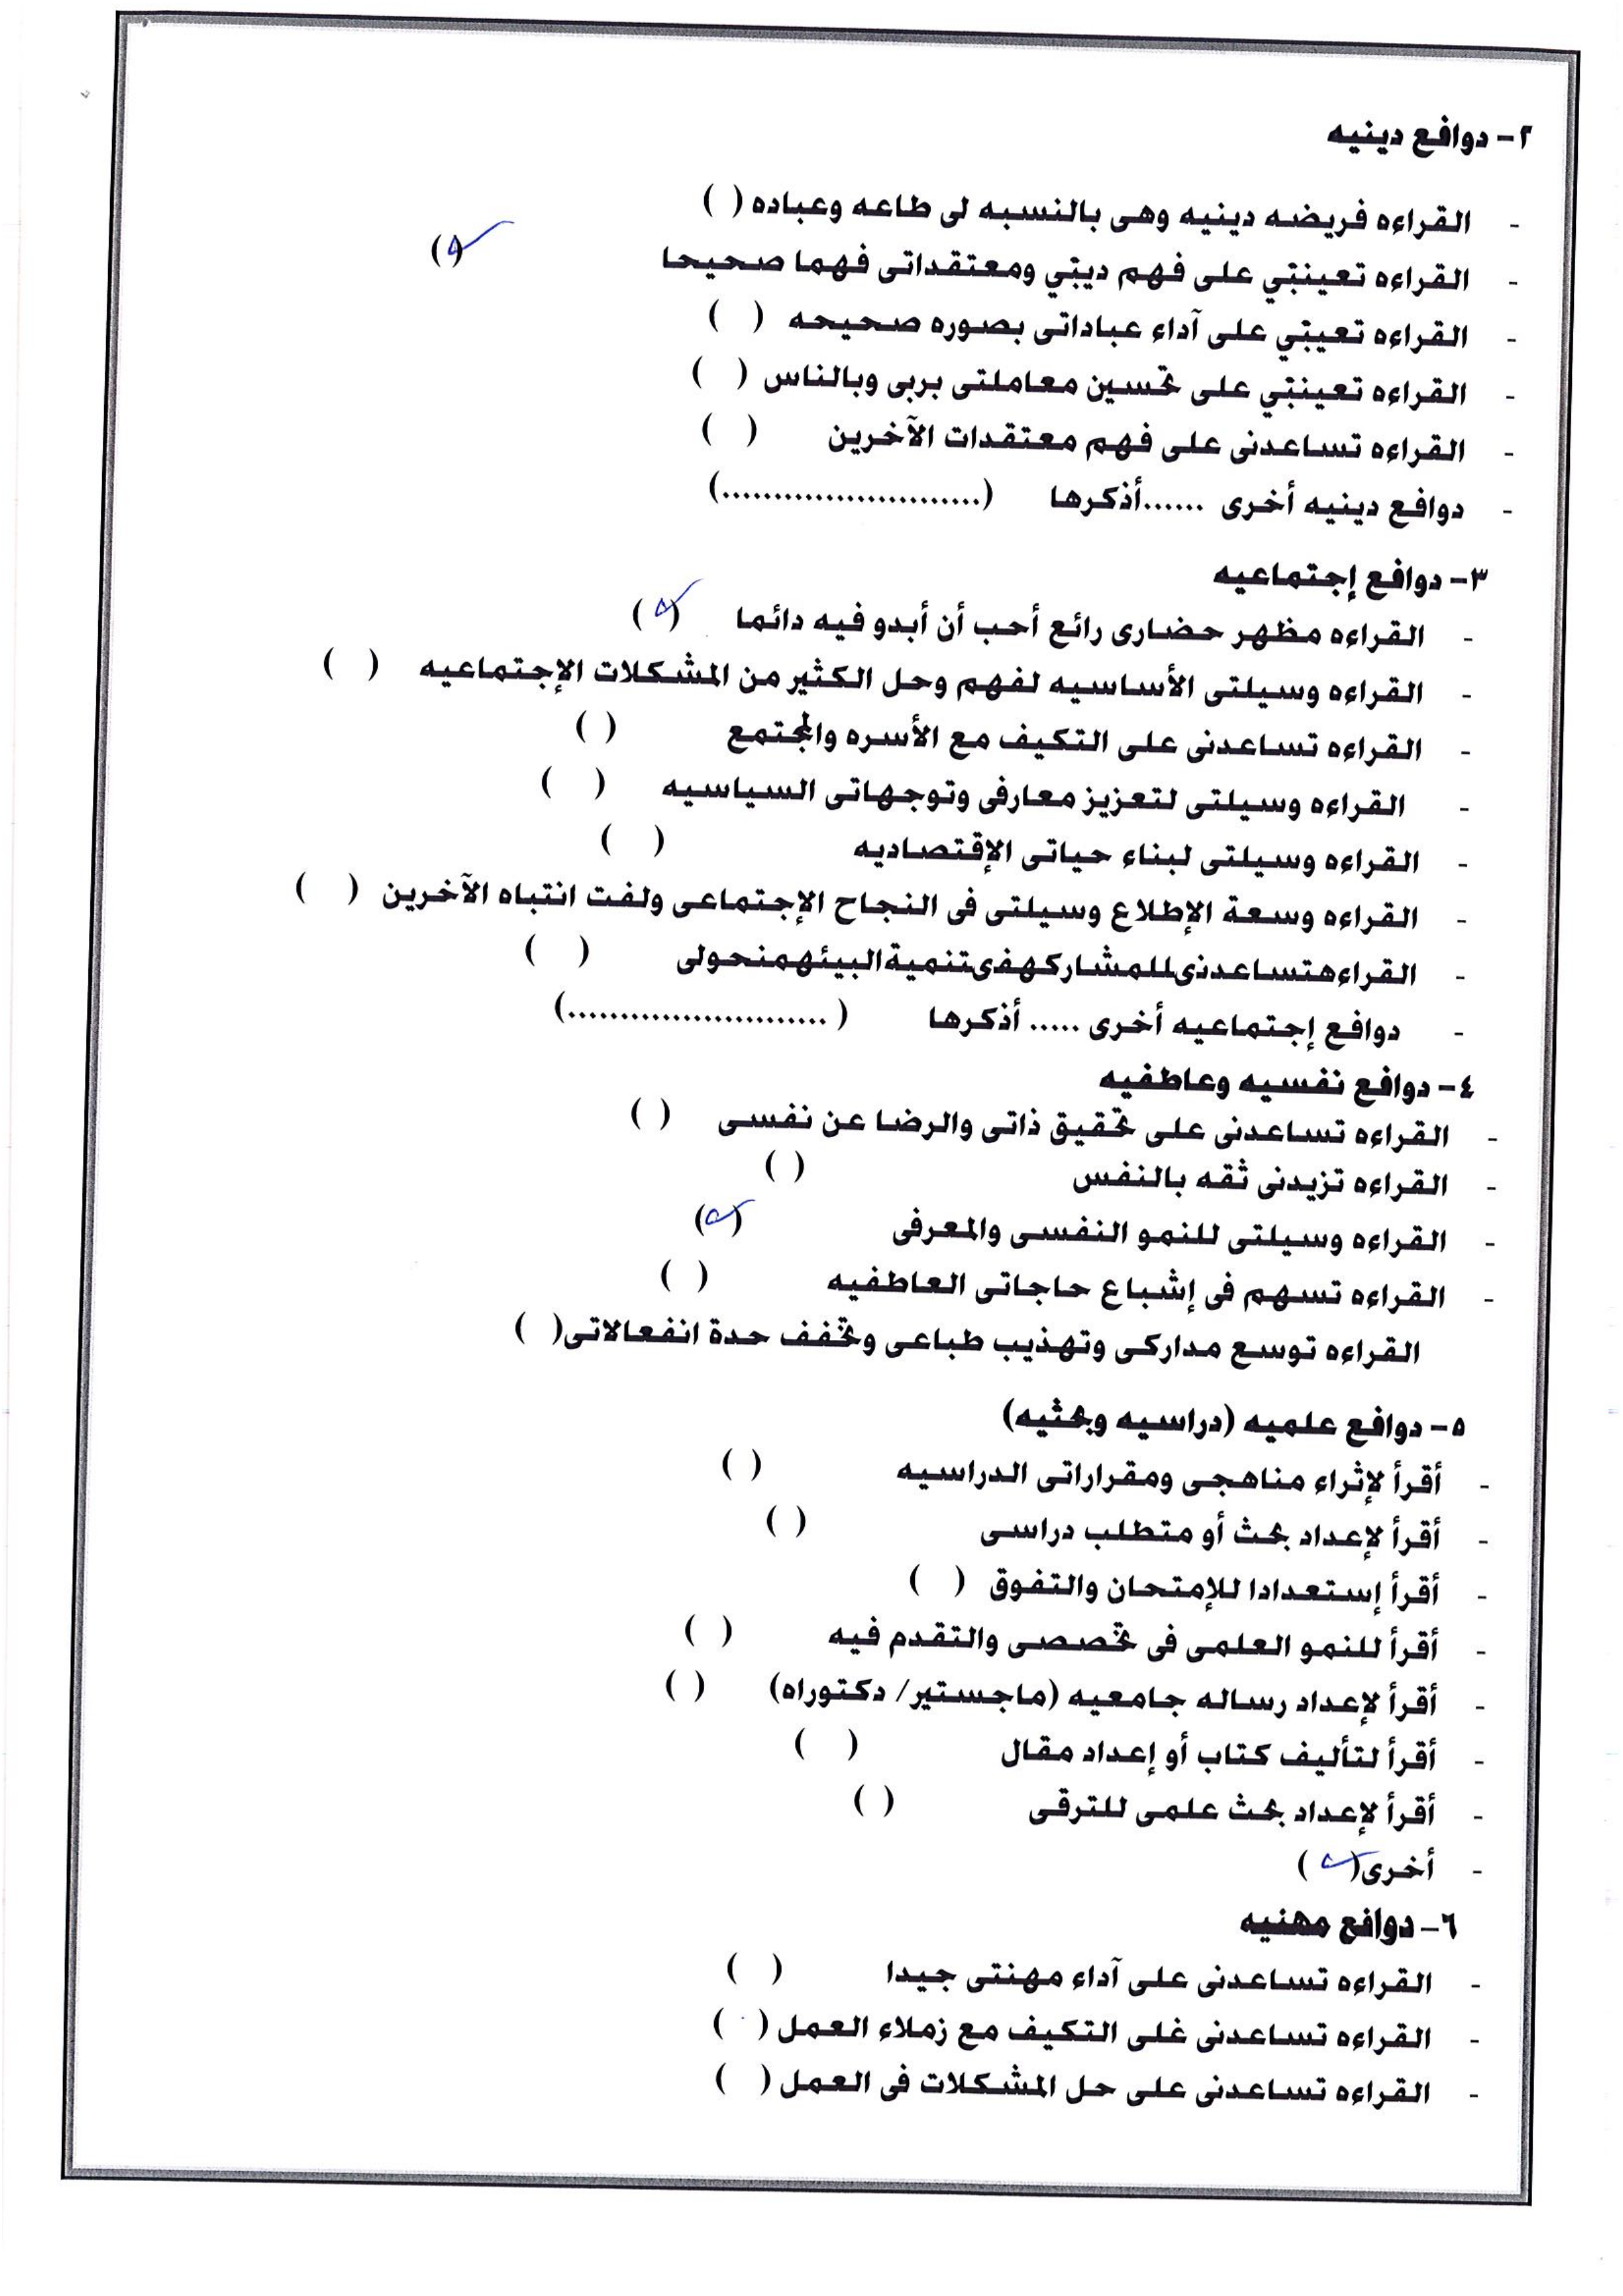 ٢- دوافع دينيه
- القراءه فريضه دينيه وهى بالنسبه لى طاعه وعباده ( )
- القراءه تعيننتي على فهم ديتي ومعتقداتى فهما صحيحا (✓)
- القراءه تعيتي على آداء عباداتى بصوره صحيحه ( )
- القراءه تعيننتي على تحسين معاملتى بربى وبالناس ( )
- القراءه تساعدنى على فهم معتقدات الآخرين ( )
- دوافع دينيه أخرى ......أذكرها (.........................)
٣- دوافع إجتماعيه
- القراءه مظهر حضارى رائع أحب أن أبدو فيه دائما (✓)
- القراءه وسيلتى الأساسيه لفهم وحل الكثير من المشكلات الإجتماعيه ( )
- القراءه تساعدنى على التكيف مع الأسره والمجتمع ( )
- القراءه وسيلتى لتعزيز معارفى وتوجهاتى السياسيه ( )
- القراءه وسيلتى لبناء حياتى الإقتصاديه ( )
- القراءه وسعة الإطلاع وسيلتى فى النجاح الإجتماعى ولفت انتباه الآخرين ( )
- القراءهتساعدنىللمشاركهفىتنميةالبيئهمنحولى ( )
- دوافع إجتماعيه أخرى ..... أذكرها ( .........................)
٤- دوافع نفسيه وعاطفيه
- القراءه تساعدنى على تحقيق ذاتى والرضا عن نفسى ( )
- القراءه تزيدنى ثقه بالنفس ( )
- القراءه وسيلتى للنمو النفسى والمعرفى (✓)
- القراءه تسهم فى إشباع حاجاتى العاطفيه ( )
القراءه توسع مداركى وتهذيب طباعى وتخفف حدة انفعالاتى( )
٥- دوافع علميه (دراسيه وبحثيه)
- أقرأ لإثراء مناهجى ومقرراتى الدراسيه ( )
- أقرأ لإعداد بحث أو متطلب دراسى ( )
- أقرأ إستعدادا للإمتحان والتفوق ( )
- أقرأ للنمو العلمى فى تخصصى والتقدم فيه ( )
- أقرأ لإعداد رساله جامعيه (ماجستير/ دكتوراه) ( )
- أقرأ لتأليف كتاب أو إعداد مقال ( )
- أقرأ لإعداد بحث علمى للترقى ( )
- أخرى(✓ )
٦- دوافع مهنيه
- القراءه تساعدنى على آداء مهنتى جيدا ( )
- القراءه تساعدنى غلى التكيف مع زملاء العمل ( )
- القراءه تساعدنى على حل المشكلات فى العمل ( )